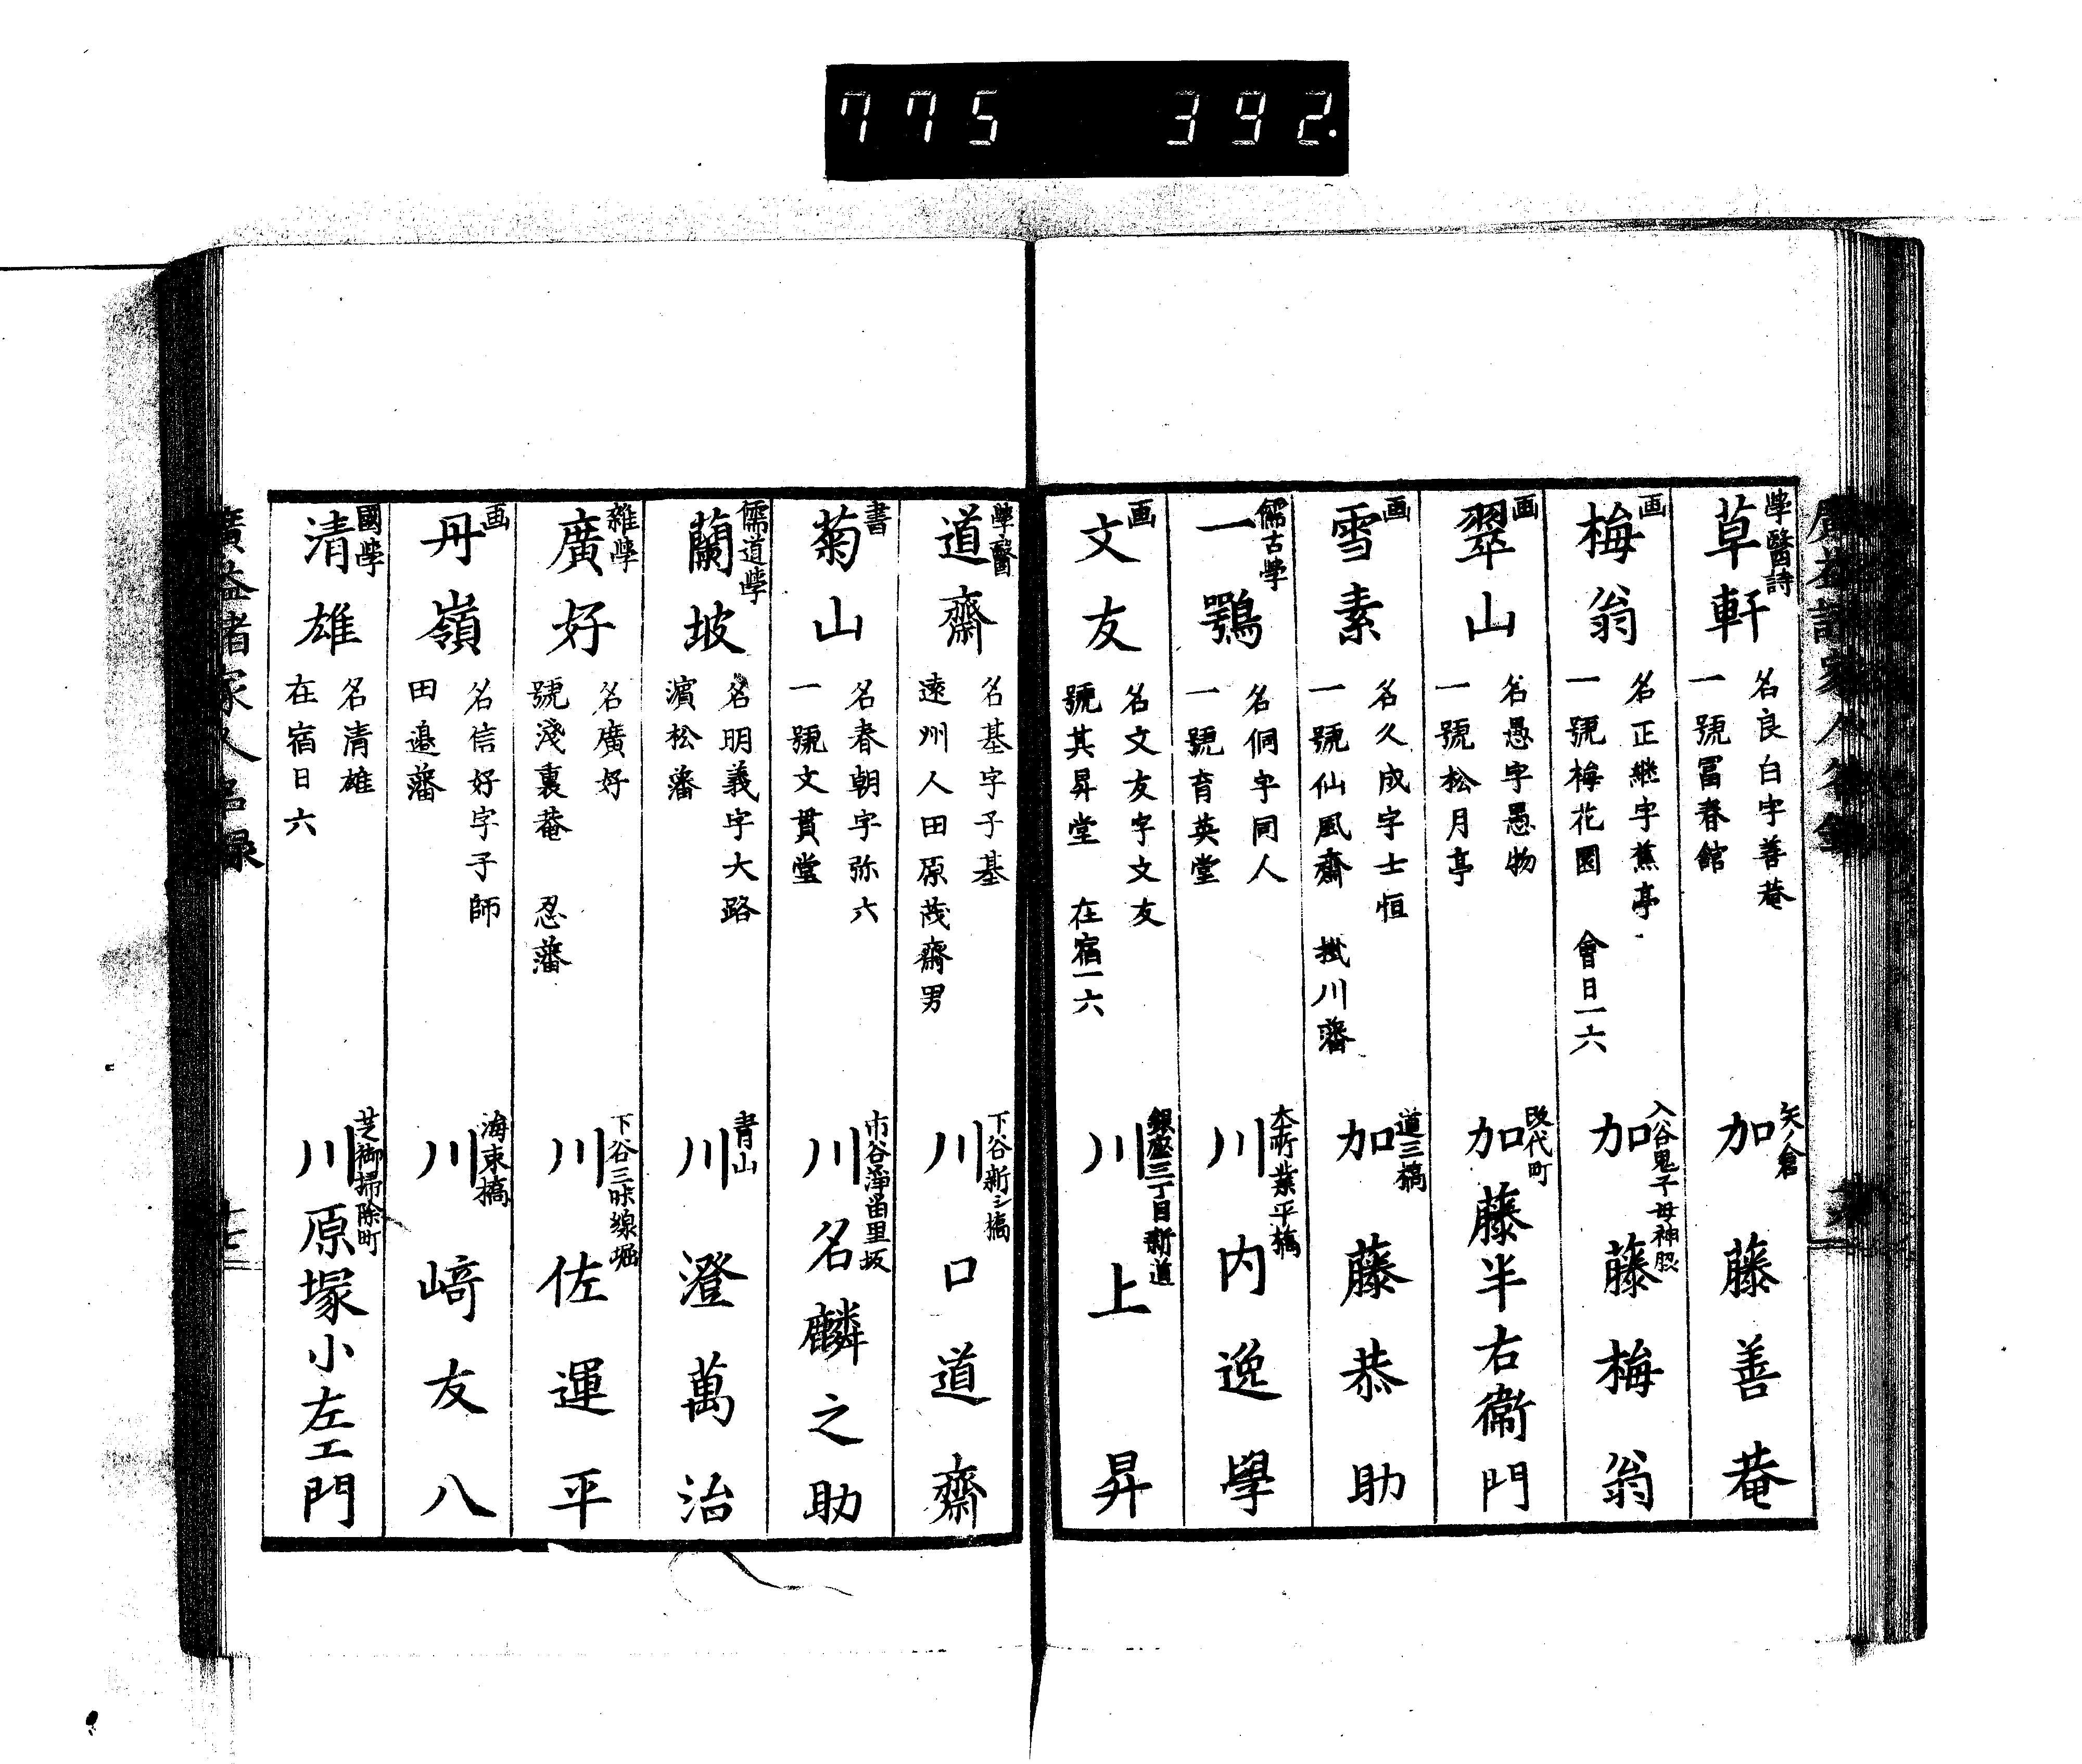 775 392.
學醫詩
草軒
名良白字善菴
一號冨春館
矢ノ倉
加藤善菴
画
梅翁
名正継字蕉亭
一號梅花園 會日一六
入谷鬼子母神脇
加藤梅翁
画
翠山
名愚字愚物
一號松月亭
改代町
加藤半右衞門
画
雪素
名久成字士恒
一號仙風齋 掛川藩
道三橋
加藤恭助
儒古學
一鶚
名侗字同人
一號育英堂
本所業平橋
川内逸學
画
文友
名文友字文友
號其昇堂 在宿一六
銀座三丁目新道
川上昇
學醫
道齋
名基字子基
遠州人田原茂齋男
下谷新シ橋
川口道齋
書
菊山
名春朝字弥六
一號文貫堂
市谷淨留里坂
川名麟之助
儒道學
蘭坡
名明義字大路
濵松藩
青山
川澄萬治
雜學
廣好
名廣好
號淺裏菴 忍藩
下谷三味線堀
川佐運平
画
丹嶺
名信好字子師
田邉藩
海束橋
川﨑友八
國學
清雄
名清雄
在宿日六
芝御掃除町
川原塚小左エ門
廣益諸家人名録